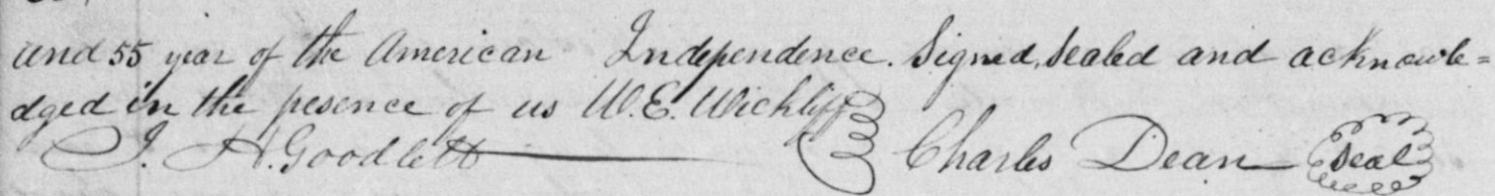 and 55 year of the American Independence. Signed, Sealed and acknowle=
dged in the pesence of us W. E. Wickliff
J. H. Goodlett Charles Dean Seal